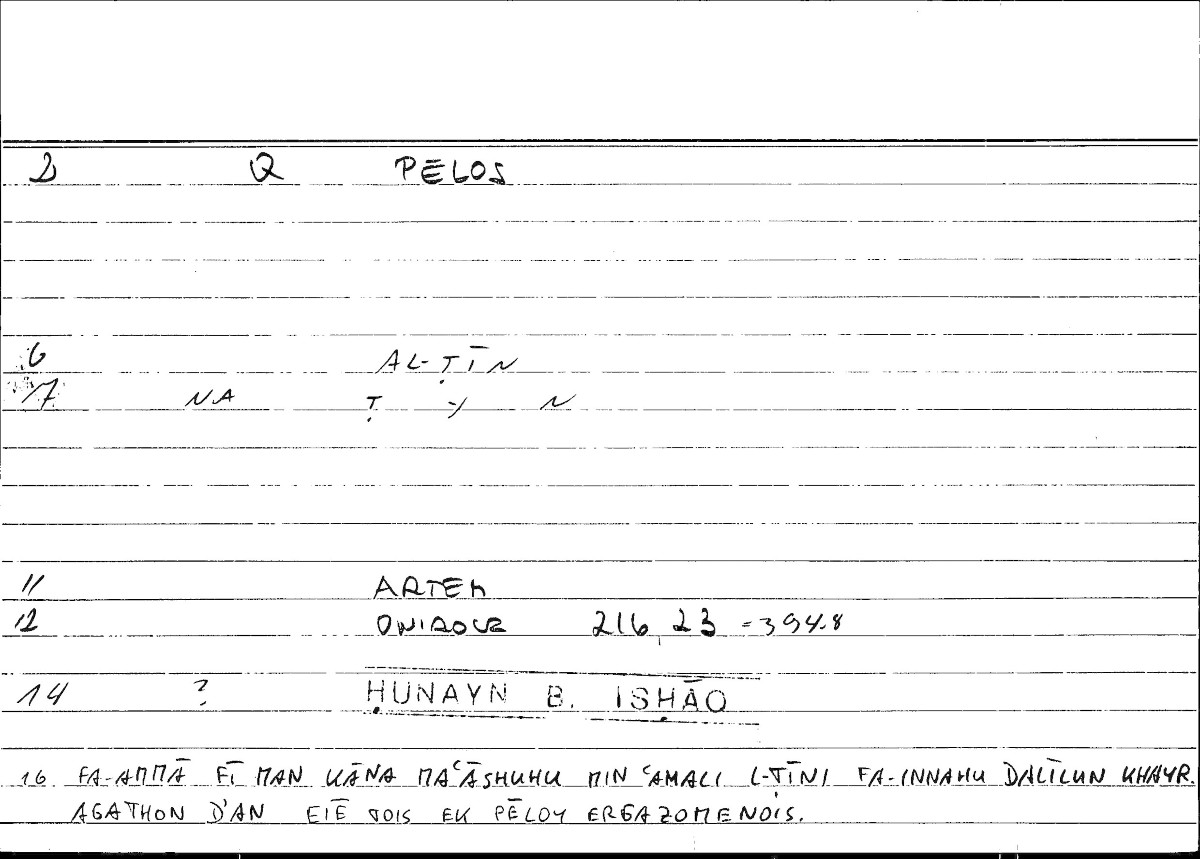 2 Q PĒLOS
6 AL-ṬĪN
7 NA Ṭ Y N
11 ARTEM
12 ONIROCR 216,23 = 394.8
14 ? ḤUNAYN B. ISḤĀQ
16. FA-AMMĀ FĪ MAN KĀNA MAʿĀSHUHU MIN ʿAMALI L-ṬĪNI FA-INNAHU DALĪLUN KHAYR.
AGATHON D'AN EIĒ TOIS EK PĒLOY ERGAZOMENOIS.